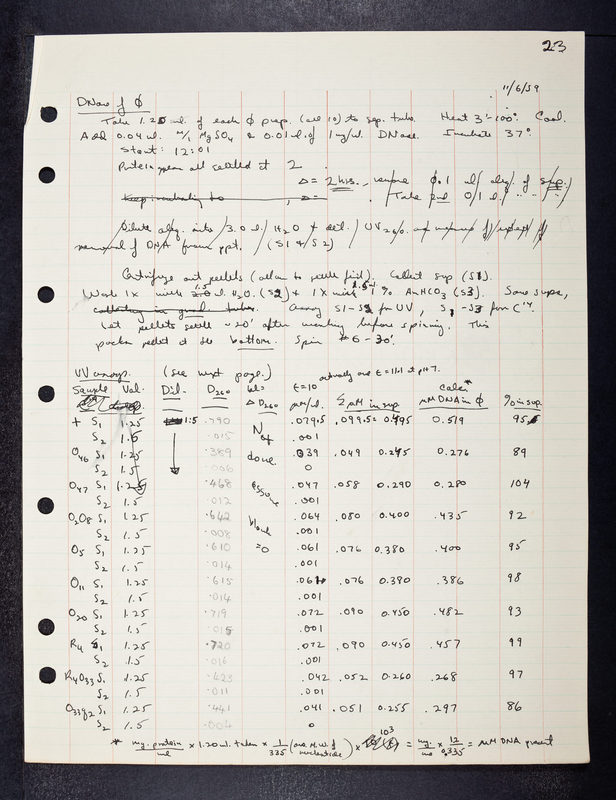 23
11/6/59
DNase of φ
Take 1.20 ml. of each φ prep. (all 10) to sep. tube. Heat 3'-100°. Cool.
Add 0.04 ml. M/1 MgSO4 & 0.01 ml. of 1 mg/ml. DNase. Incubate 37°.
Start: 12:01
Protein seen all settled at 2
Δ = 2 hrs., remove 0.1 ml of sup.
Keep incubating to , Δ = (Take 2nd 0.1 ml.
Dilute into 3.0 ml. H2O & det. UV260
removal of DNA from ppt. (S1 & S2)
Centrifuge out pellets (allow to settle first). Collect sup (S1).
Wash 1x with 1.5 ml. H2O. (S2) & 1x with 1.5 ml 1% AmHCO3 (S3). Save sups,
Assay S1-S2 for UV, S1-S3 for C14.
Let pellets settle ~20' after washing before spinning. This
packs pellet at the bottom. Spin #6-30'.
UV assays. (see next page.) actually use ε = 11.1 at pH 7.
Sample Vol. Dil. D260 Δ D260 ε=10 μM/ml. Σ μM in sup calc* μM DNA in φ % in sup.
+ S1 1.25 1:5 .790 .0795 .0995 0.495 0.519 95.5
S2 1.5 .015 .001
O46 S1 1.25 .389 .039 .049 0.245 0.276 89
S2 1.5 .006 0
O47 S1 1.25 .468 .047 .058 0.290 0.280 104
S2 1.5 .012 .001
O308 S1 1.25 .642 .064 .080 0.400 .435 92
S2 1.5 .008 .001
O5 S1 1.25 .610 .061 .076 0.380 .400 95
S2 1.5 .014 .001
O11 S1 1.25 .615 .061 .076 0.380 .386 98
S2 1.5 .014 .001
O20 S1 1.25 .719 .072 .090 0.450 .482 93
S2 1.5 .015 .001
R4 S1 1.25 .720 .072 .090 0.450 .457 99
S2 1.5 .016 .001
R4O33 S1 1.25 .423 .042 .052 0.260 .268 97
S2 1.5 .011 .001
O33g2 S1 1.25 .441 .041 .051 0.255 .297 86
S2 1.5 .004 0
Not done. assume blank = 0
* mg. protein/ml × 1.20 ml. taken × 1/335 (ave M.W. of nucleotide) × 10^3 = mg./ml × 12/0.335 = μM DNA present